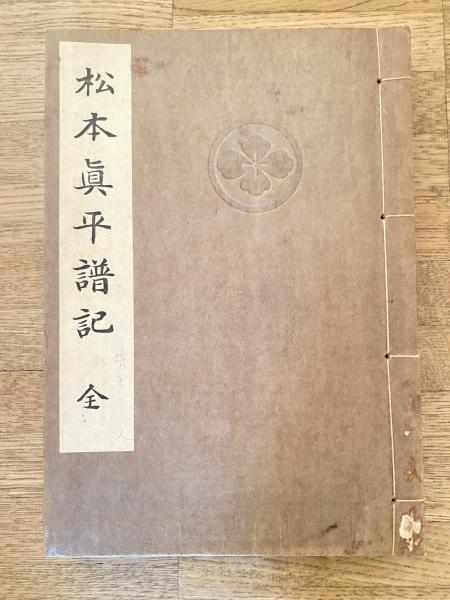 松本眞平譜記 全